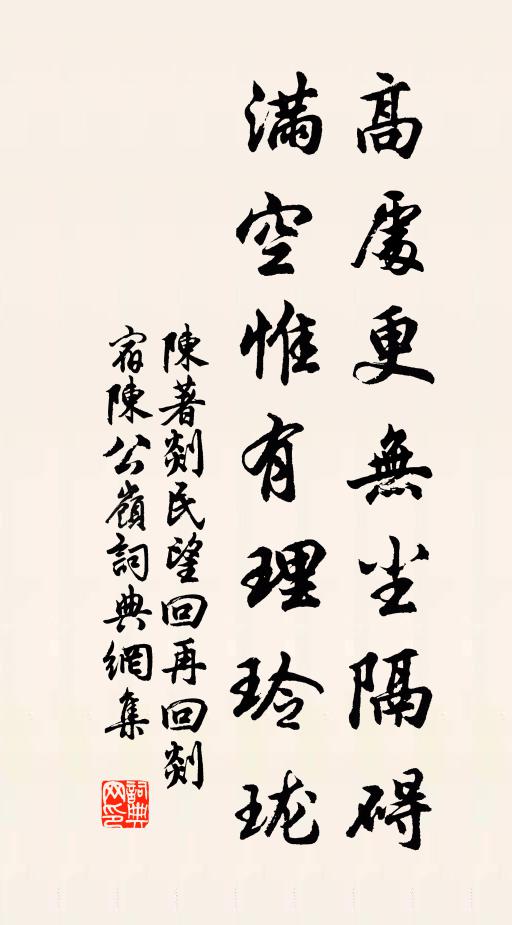 高處更無尘隔碍
滿空惟有理玲珑
陳著剡民望回再回剡
宿陳公嶺詞典網集
詞典网印